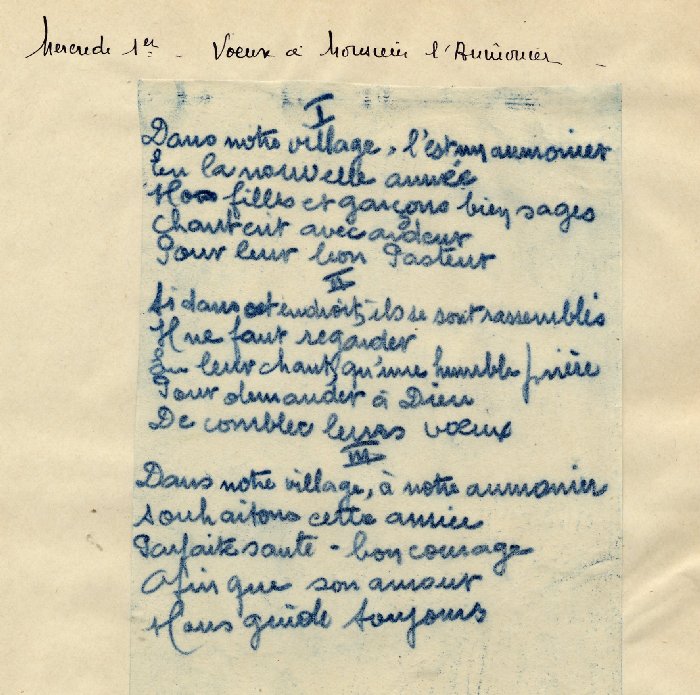 Mercredi 1er - Voeux à Monsieur l'Aumônier
I
Dans notre village, l'est un aumonier
En la nouvelle année
Nos filles et garçons bien sages
Chantent avec ardeur
Pour leur bon Pasteur
II
Si dans cet endroit, ils se sont rassemblés
Il ne faut regarder
En leur chant, qu'une humble prière
Pour demander à Dieu
De combler leurs voeux
III
Dans notre village, à notre aumonier
Souhaitons cette année
Parfaite santé - bon courage
Afin que son amour
Nous guide toujours